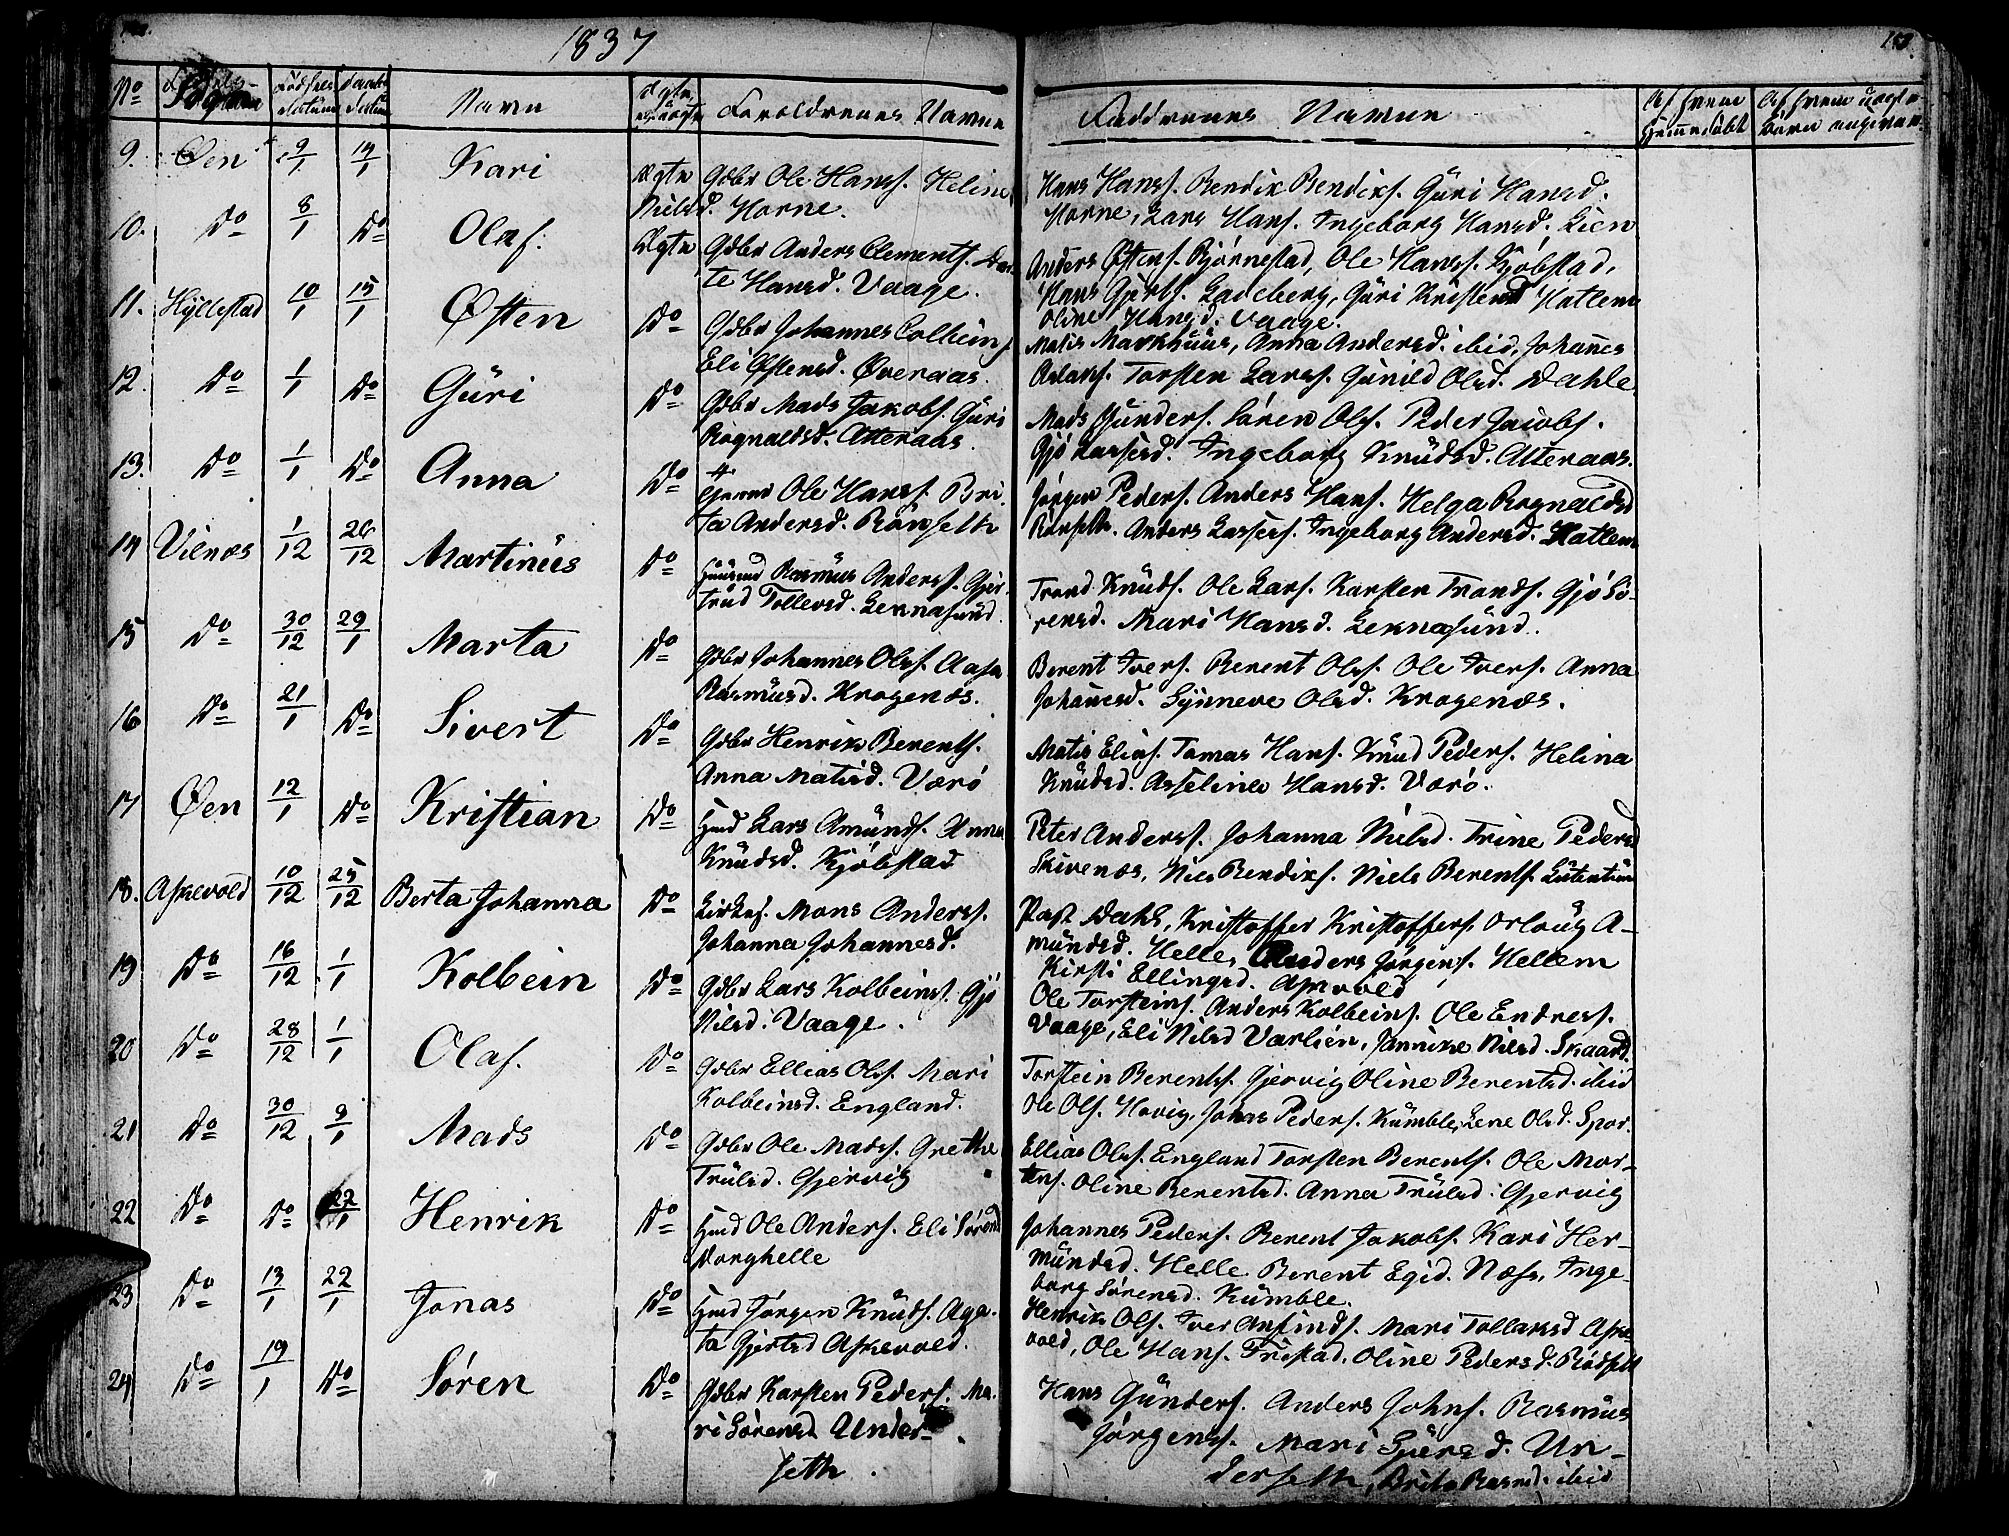 1837
153.
No Fødsels Datum Daabs Datum Navn Forældrenes Navne Faddrenes Navne
9. Øen 9/1 14/1 Kari Ægte Gdbr Ole Hanss. Heline
Nielsd. Horne.
Hans Hanss. Bendix Bendixs. Güri Hansd.
Horne, Lars Hans. Ingeborg Hansd. Lien
10. Do 8/1 Do Olaf. Ægte Gdbr Anders Clements. Dor-
te Hansd. Vaage.
Anders Østens. Bjørnestad, Ole Hanss. Kjøbstad,
Hans Gjerts. Ladeberg, Güri Kristensd Hatlem
Oline Hansd. Vaage.
11. Hÿllestad 10/1 15/1 Østen Do Gdbr Johannes Colbeins.
Eli Østensd. Øveraas.
Matis Markhuus, Anna Andersd. ibid, Johanes
Torsten Larss. Gunild Olsd. Dahle
12. Do 1/1 Do Güri Do Gdbr Mads Jakobs. Güri
Rognaldsd. Atteraas.
Mads Gunders. Søren Ols. Peder Jacobs.
Gjø Lassesd. Ingeborg Knüdsd. Atteraas.
13. Do 1/1 Do Anna Do Ole Hanss. Bri-
ta Andersd. Rønseth
Jørgen Peders. Anders Hans. Helga Rognaldsd
Rønseth. Anders Lassess. Ingeborg Andersd. Hatlem
14 Vilnæs 1/12 26/12 Martinüs Do Huusmd Rasmus Anderss. Gjer-
trud Tollevsd. Leknasund.
Trond Knüds. Ole Lars. Karsten Tronds. Gjø Sö-
rensd. Mari Hansd. Leknasünd.
15 Do 30/12 29/1 Marta Do Gdbr Johannes Olss. Aasa
Rasmüsd. Kragenæs.
Berent Ivers. Berent Olss. Ole Ivers. Anna
Johanesd. Sÿnneve Olsd. Kragenæs.
16 Do 21/1 Do Sivert Do Gdbr Henrik Berents.
Anna Matisd. Værö
Matis Elias. Tomas Hans. Knüd Peders. Helina
Knüdsd. Asseline Hansd. Værö.
17 Øen 12/1 Do Kristian Do Hmd Lars Amünds. Anna
Knüdsd. Kjöbstad
Peter Anderss. Johanna Nielsd. Trine Pedersd
Skivenæs, Niels Bendixs. Niels Berents.
18. Askevold 10/12 25/12 Berta Johanna Do Kirkes. Mons Anderss.
Johanna Johannesd.
Past Dahl, Kristoffer Kristoffers. Orloüg A-
mündsd. Helle, Anders Jørgens. Hellem
Kirsti Ellingsd. Askvold
19 Do 16/12 1/1 Kolbein Do Gdbr Lars Kolbeins. Gjö
Nilsd. Vaage.
Ole Torsteins. Anders Kolbeins. Ole Endress.
Vaage, Eli Nilsd Varlien, Jannike Nilsd. Skaard.
20 Do 28/12 1/1 Olaf. Do Gdbr Ellias Ols. Mari
Kolbeinsd. England.
Torstein Berents. Gjervig Oline Berentsd. ibid
Ole Ols. Hovig, Johas Peders. Kümble, Lene Olsd. Spor.
21 Do 30/12 9/1 Mads Do Gdbr Ole Madss. Grethe
Trülsd. Gjervig
Ellias Olss. England Torsten Berents. Ole Mor-
tens. Oline Berentsd. Anna Trülsd. Gjervig
22 Do Do 22/1 Henrik Do Hmd Ole Anders. Eli Sörensd
Vorghelle
Johannes Peders. Berent Jakobs. Kari Her-
mündsd. Helle Berent Egid. Næss, Inge-
borg Sörensd. Kümble.
23 Do 13/1 22/1 Jonas Do Hmd Jørgen Knüds. Aga-
ta Gjertsd Askevold.
Henrik Ols. Iver Anfinds. Mari Tollaksd Aske-
vold, Ole Hans. Fristad, Oline Pedersd. Rødseth
24 Do 19/1 Do Søren Do Gdbr Karsten Peders. Ma-
ri Sörensd Under-
seth.
Hans Günders. Anders Johns. Rasmus
Jørgenss. Mari Spersd. Un-
derseth, Brita Rasmd. ibid